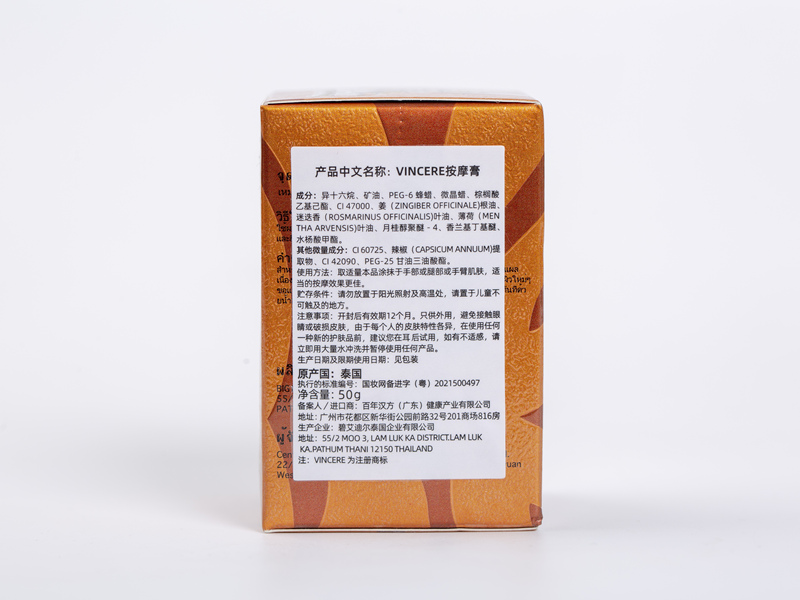 产品中文名称：VINCERE按摩膏
成分：异十六烷、矿油、PEG-6 蜂蜡、微晶蜡、棕榈酸
乙基己酯、CI 47000、姜 (ZINGIBER OFFICINALE)根油、
迷迭香 (ROSMARINUS OFFICINALIS)叶油、薄荷 (MEN
THA ARVENSIS)叶油、月桂醇聚醚 - 4、香兰基丁基醚、
水杨酸甲酯。
其他微量成分：CI 60725、辣椒 (CAPSICUM ANNUUM)提
取物、CI 42090、PEG-25 甘油三油酸酯。
使用方法：取适量本品涂抹于手部或腿部或手臂肌肤，适
当的按摩效果更佳。
贮存条件：请勿放置于阳光照射及高温处，请置于儿童不
可触及的地方。
注意事项：开封后有效期12个月。只供外用，避免接触眼
睛或破损皮肤，由于每个人的皮肤特性各异，在使用任何
一种新的护肤品前，建议您在耳后试用，如有不适感，请
立即用大量水冲洗并暂停使用任何产品。
生产日期及限期使用日期：见包装
原产国：泰国
执行的标准编号：国妆网备进字（粤）2021500497
净含量：50g
备案人／进口商：百年汉方（广东）健康产业有限公司
地址：广州市花都区新华街公园前路32号201商场816房
生产企业：碧艾迪尔泰国企业有限公司
地址：55/2 MOO 3, LAM LUK KA DISTRICT.LAM LUK
KA.PATHUM THANI 12150 THAILAND
注：VINCERE 为注册商标